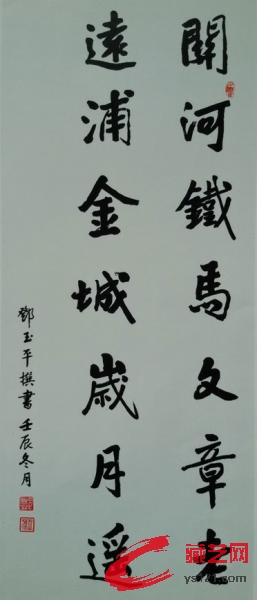 關河鐵馬文章老
遠浦金城歲月遥
鄧玉平撰書壬辰冬月